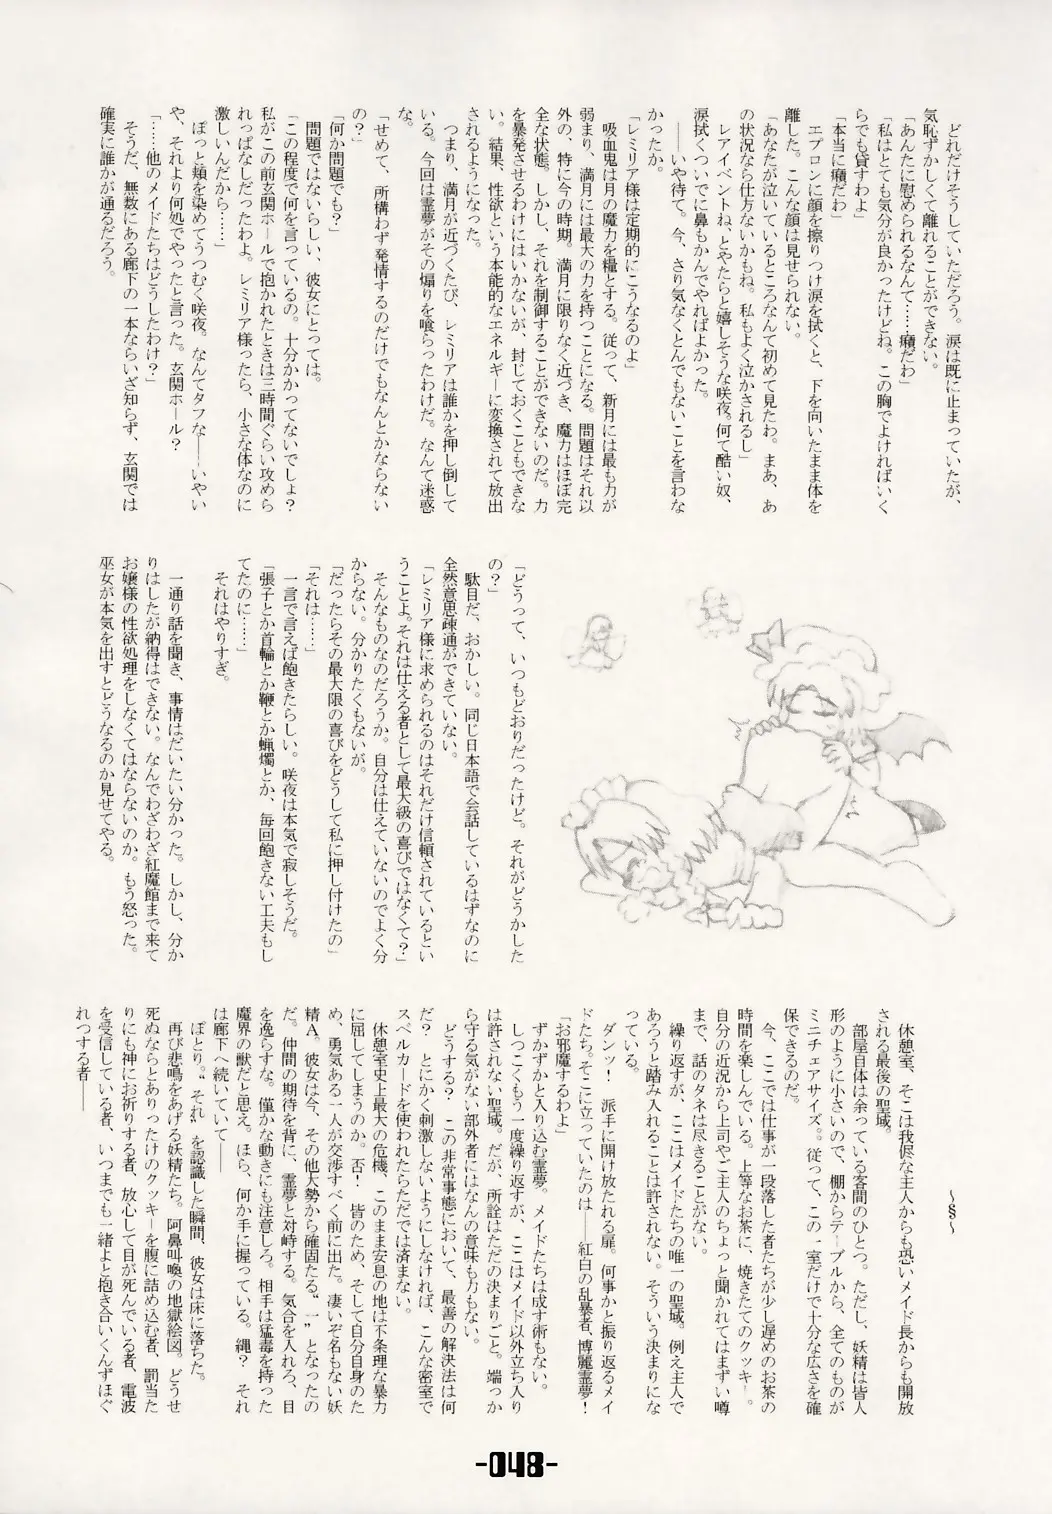 どれだけそうしていただろう。涙は既に止まっていたが、
気恥ずかしくて離れることができない。
「あんたに慰められるなんて……癪だわ」
「私はとても気分が良かったけどね。この胸でよければいく
らでも貸すわよ」
「本当に癪だわ」
エプロンに顔を擦りつけ涙を拭くと、下を向いたまま体を
離した。こんな顔は見せられない。
「あなたが泣いているところなんて初めて見たわ。まあ、あ
の状況なら仕方ないかもね。私もよく泣かされるし」
レアイベントね、とやたらと嬉しそうな咲夜。何て酷い奴、
涙拭くついでに鼻もかんでやればよかった。
――いや待て。今、さり気なくとんでもないことを言わな
かったか。
「レミリア様は定期的にこうなるのよ」
吸血鬼は月の魔力を糧とする。従って、新月には最も力が
弱まり、満月には最大の力を持つことになる。問題はそれ以
外の、特に今の時期。満月に限りなく近づき、魔力はほぼ完
全な状態。しかし、それを制御することができないのだ。力
を暴発させるわけにはいかないが、封じておくこともできな
い。結果、性欲という本能的なエネルギーに変換されて放出
されるようになった。
つまり、満月が近づくたび、レミリアは誰かを押し倒して
いる。今回は霊夢がその煽りを喰らったわけだ。なんて迷惑
な。
「せめて、所構わず発情するのだけでもなんとかならない
の？」
「何か問題でも？」
問題ではないらしい、彼女にとっては。
「この程度で何を言っているの。十分かかってないでしょ？
私がこの前玄関ホールで抱かれたときは三時間ぐらい攻めら
れっぱなしだったわよ。レミリア様ったら、小さな体なのに
激しいんだから……」
ぽっと頬を染めてうつむく咲夜。なんてタフな――いやい
や、それより何処でやったと言った。玄関ホール？
「……他のメイドたちはどうしたわけ？」
そうだ、無数にある廊下の一本ならいざ知らず、玄関では
確実に誰かが通るだろう。
「どうって、いつもどおりだったけど。それがどうかした
の？」
駄目だ、おかしい。同じ日本語で会話しているはずなのに
全然意思疎通ができていない。
「レミリア様に求められるのはそれだけ信頼されているとい
うことよ。それは仕える者として最大級の喜びではなくて？」
そんなものなのだろうか。自分は仕えていないのでよく分
からない。分かりたくもないが。
「だったらその最大限の喜びをどうして私に押し付けたの」
「それは……」
一言で言えば飽きたらしい。咲夜は本気で寂しそうだ。
「張子とか首輪とか鞭とか蝋燭とか、毎回飽きない工夫もし
てたのに……」
それはやりすぎ。
一通り話を聞き、事情はだいたい分かった。しかし、分か
りはしたが納得はできない。なんでわざわざ紅魔館まで来て
お嬢様の性欲処理をしなくてはならないのか。もう怒った。
巫女が本気を出すとどうなるのか見せてやる。
～§～
休憩室、そこは我侭な主人からも恐いメイド長からも開放
される最後の聖域。
部屋自体は余っている客間のひとつ。ただし、妖精は皆人
形のように小さいので、棚からテーブルから、全てのものが
ミニチュアサイズ。従って、この一室だけで十分な広さを確
保できるのだ。
今、ここでは仕事が一段落した者たちが少し遅めのお茶の
時間を楽しんでいる。上等なお茶に、焼きたてのクッキー。
自分の近況から上司やご主人のちょっと聞かれてはまずい噂
まで、話のタネは尽きることがない。
繰り返すが、ここはメイドたちの唯一の聖域。例え主人で
あろうと踏み入れることは許されない。そういう決まりにな
っている。
ダンッ！　派手に開け放たれる扉。何事かと振り返るメイ
ドたち。そこに立っていたのは――紅白の乱暴者、博麗霊夢！
「お邪魔するわよ」
ずかずかと入り込む霊夢。メイドたちは成す術もない。
しつこくもう一度繰り返すが、ここはメイド以外立ち入り
は許されない聖域。だが、所詮はただの決まりごと。端っか
ら守る気がない部外者にはなんの意味も力もない。
どうする？　この非常事態において、最善の解決法は何
だ？　とにかく刺激しないようにしなければ、こんな密室で
スペルカードを使われたらただでは済まない。
休憩室史上最大の危機、このまま安息の地は不条理な暴力
に屈してしまうのか。否！　皆のため、そして自分自身のた
め、勇気ある一人が交渉すべく前に出た。凄いぞ名もない妖
精Ａ。彼女は今、その他大勢から確固たる“一”となったの
だ。仲間の期待を背に、霊夢と対峙する。気合を入れろ、目
を逸らすな。僅かな動きにも注意しろ。相手は猛毒を持った
魔界の獣だと思え。ほら、何か手に握っている。縄？　それ
は廊下へ続いていて――
ぽとり。“それ”を認識した瞬間、彼女は床に落ちた。
再び悲鳴をあげる妖精たち。阿鼻叫喚の地獄絵図。どうせ
死ぬならとありったけのクッキーを腹に詰め込む者、罰当た
りにも神にお祈りする者、放心して目が死んでいる者、電波
を受信している者、いつまでも一緒よと抱き合いくんずほぐ
れつする者――
-048-